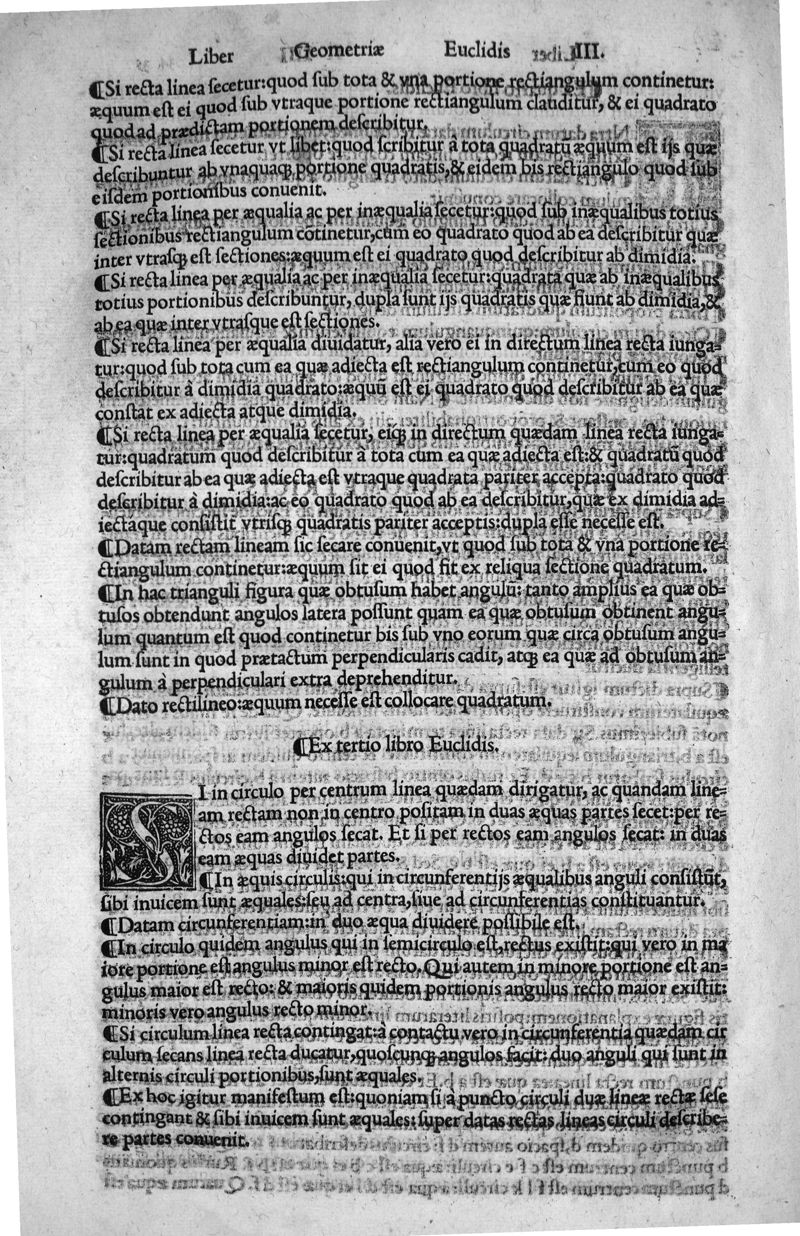 Liber Geometriæ Euclidis III.
¶Si recta linea secetur: quod sub tota & vna portione rectiangulum continetur:
æquum est ei quod sub vtraque portione rectiangulum clauditur, & ei quadrato
quod ad prædictam portionem describitur.
¶Si recta linea secetur vt libet: quod scribitur â tota quadratū æquum est ijs quæ
describuntur ab vnaquaqꝫ portione quadratis, & eidem bis rectiangulo quod sub
eisdem portionibus conuenit.
¶Si recta linea per æqualia ac per inæqualia secetur: quod sub inæqualibus totius
sectionibus rectiangulum cōtinetur, cum eo quadrato quod ab ea describitur quæ
inter vtrasqꝫ est sectiones: æquum est ei quadrato quod describitur ab dimidia.
¶Si recta linea per æqualia ac per inæqualia secetur: quadrata quæ ab inæqualibus
totius portionibus describuntur, dupla sunt ijs quadratis quæ fiunt ab dimidia, &
ab ea quæ inter vtrasque est sectiones.
¶Si recta linea per æqualia diuidatur, alia vero ei in directum linea recta iunga-
tur: quod sub tota cum ea quæ adiecta est rectiangulum continetur, cum eo quod
describitur â dimidia quadrato: æquū est ei quadrato quod describitur ab ea quæ
constat ex adiecta atque dimidia.
¶Si recta linea per æqualia secetur, eiqꝫ in directum quædam linea recta iunga-
tur: quadratum quod describitur â tota cum ea quæ adiecta est: & quadratū quod
describitur ab ea quæ adiecta est vtraque quadrata pariter accepta: quadrato quod
describitur â dimidia: ac eo quadrato quod ab ea describitur, quæ ex dimidia ad-
iectaque consistit vtrisqꝫ quadratis pariter acceptis: dupla esse necesse est.
¶Datam rectam lineam sic secare conuenit, vt quod sub tota & vna portione re-
ctiangulum continetur: æquum sit ei quod fit ex reliqua sectione quadratum.
¶In hac trianguli figura quæ obtusum habet angulū: tanto amplius ea quæ ob-
tusos obtendunt angulos latera possunt quam ea quæ obtusum obtinent angu-
lum quantum est quod continetur bis sub vno eorum quæ circa obtusum angu-
lum sunt in quod prætactum perpendicularis cadit, atqꝫ ea quæ ad obtusum an-
gulum à perpendiculari extra deprehenditur.
¶Dato rectilineo: æquum necesse est collocare quadratum.
¶Ex tertio libro Euclidis.
SI in circulo per centrum linea quædam dirigatur, ac quandam line-
am rectam non in centro positam in duas æquas partes secet: per re-
ctos eam angulos secat. Et si per rectos eam angulos secat: in duas
eam æquas diuidet partes.
¶In æquis circulis: qui in circunferentijs æqualibus anguli consistūt,
sibi inuicem sunt æquales: seu ad centra, siue ad circunferentias constituantur.
¶Datam circunferentiam: in duo æqua diuidere possibile est.
¶In circulo quidem angulus qui in semicirculo est, rectus existit: qui vero in ma
iore portione est angulus minor est recto. Qui autem in minore portione est an-
gulus maior est recto: & maioris quidem portionis angulus recto maior existit:
minoris vero angulus recto minor.
¶Si circulum linea recta contingat: à contactu vero in circunferentia quædam cir
culum secans linea recta ducatur, quoscunqꝫ angulos facit: duo anguli qui sunt in
alternis circuli portionibus, sunt æquales.
¶Ex hoc igitur manifestum est: quoniam si à puncto circuli duæ lineæ rectæ sese
contingant & sibi inuicem sunt æquales: super datas rectas lineas circuli describe-
re partes conuenit.